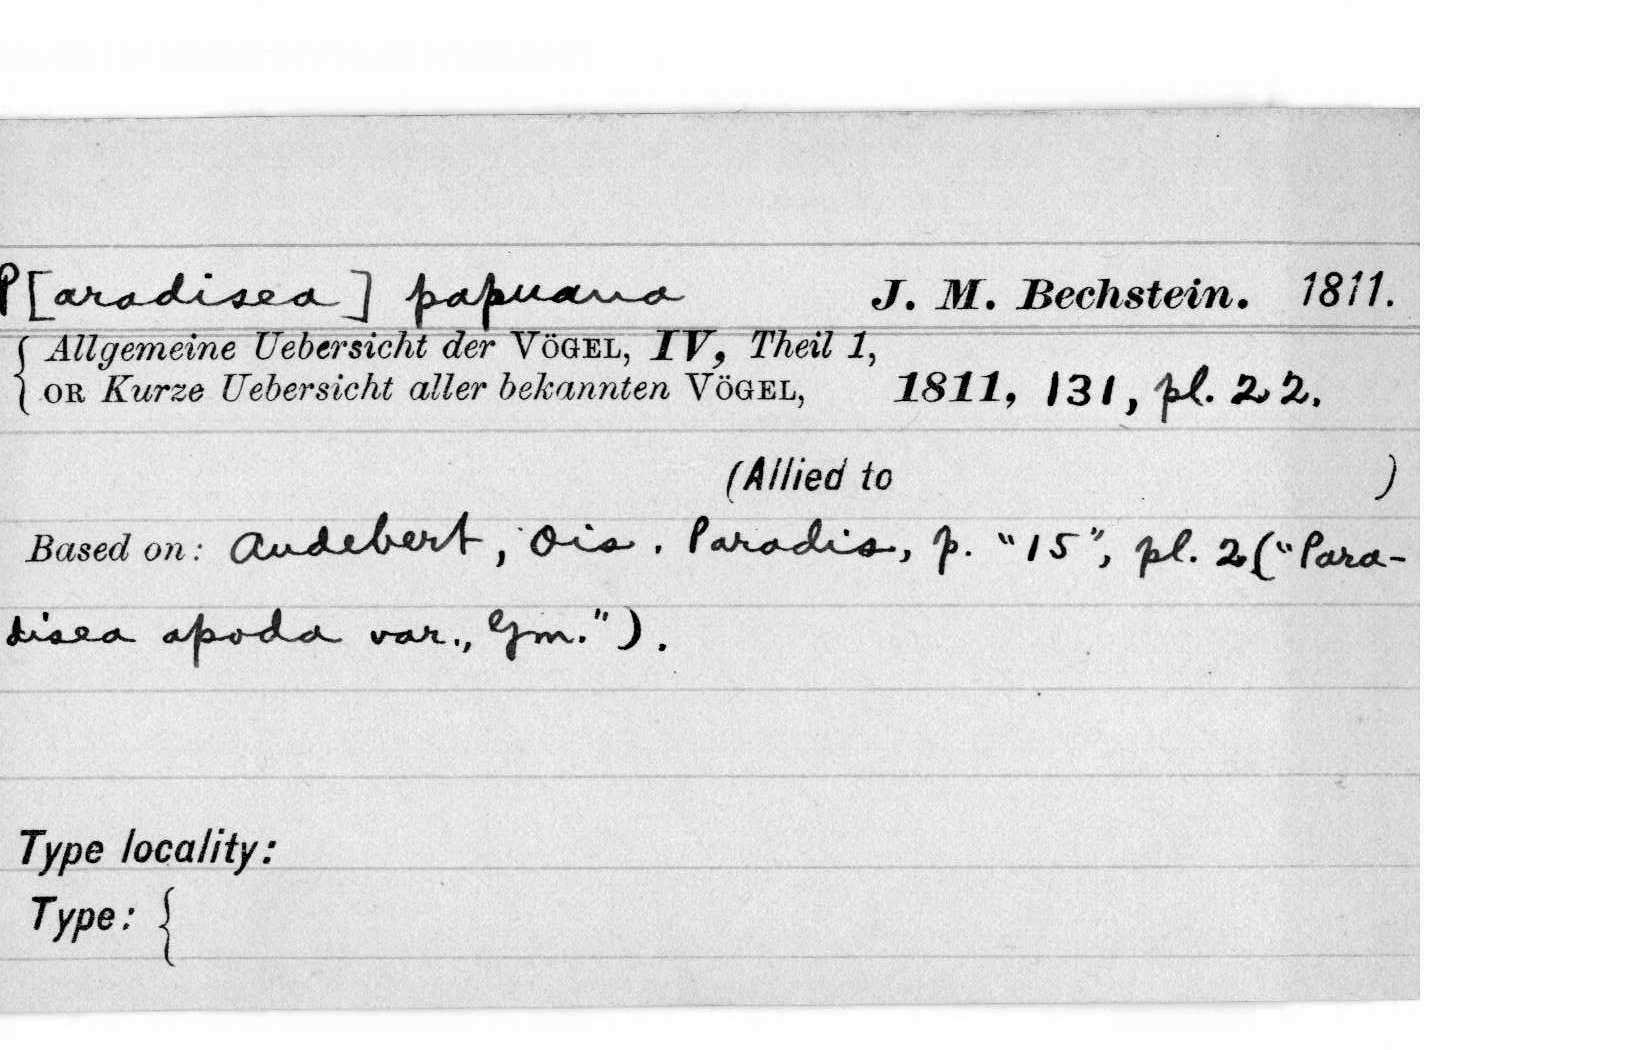 P[aradisea] papuana J. M. Bechstein. 1811.
{ Allgemeine Uebersicht der VÖGEL, IV, Theil 1,
OR Kurze Uebersicht aller bekannten VÖGEL, 1811, 131, pl. 22.
(Allied to )
Based on: Audebert, Ois. Paradis, p. "15", pl. 2 ("Para-
disea apoda var., Gm.").
Type locality:
Type: {